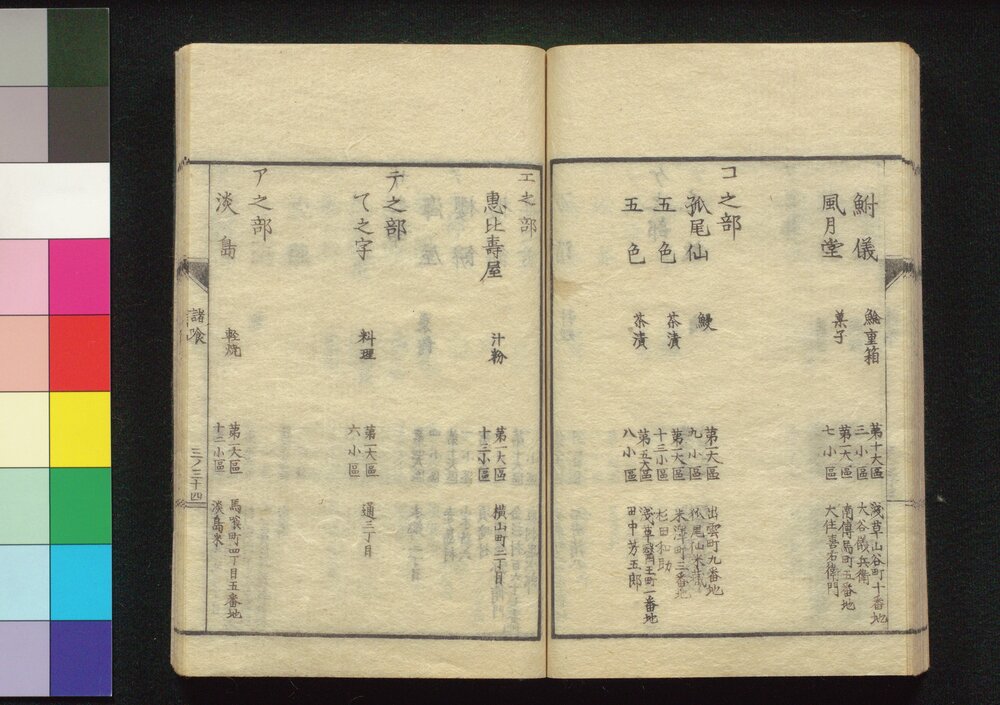 鮒儀
鯰重箱
第十大區
三小區
淺草山谷町十番地
大谷儀兵衛
風月堂
菓子
第一大區
七小區
南傳馬町五番地
大住喜右衛門
コ之部
狐尾仙
鰻
第一大區
九小區
出雲町九番地
狐尾仙米藏
五色
茶漬
第一大區
十三小區
米澤町三番地
杉田和助
五色
茶漬
第五大區
八小區
淺草醫王町一番地
田中芳五郎
エ之部
惠比壽屋
汁粉
第一大區
十三小區
横山町二丁目
テ之部
て之字
料理
第一大區
六小區
通三丁目
ア之部
淡島
輕焼
第一大區
十二小區
馬喰町四丁目五番地
淡島米
諸喰
三ノ三十四